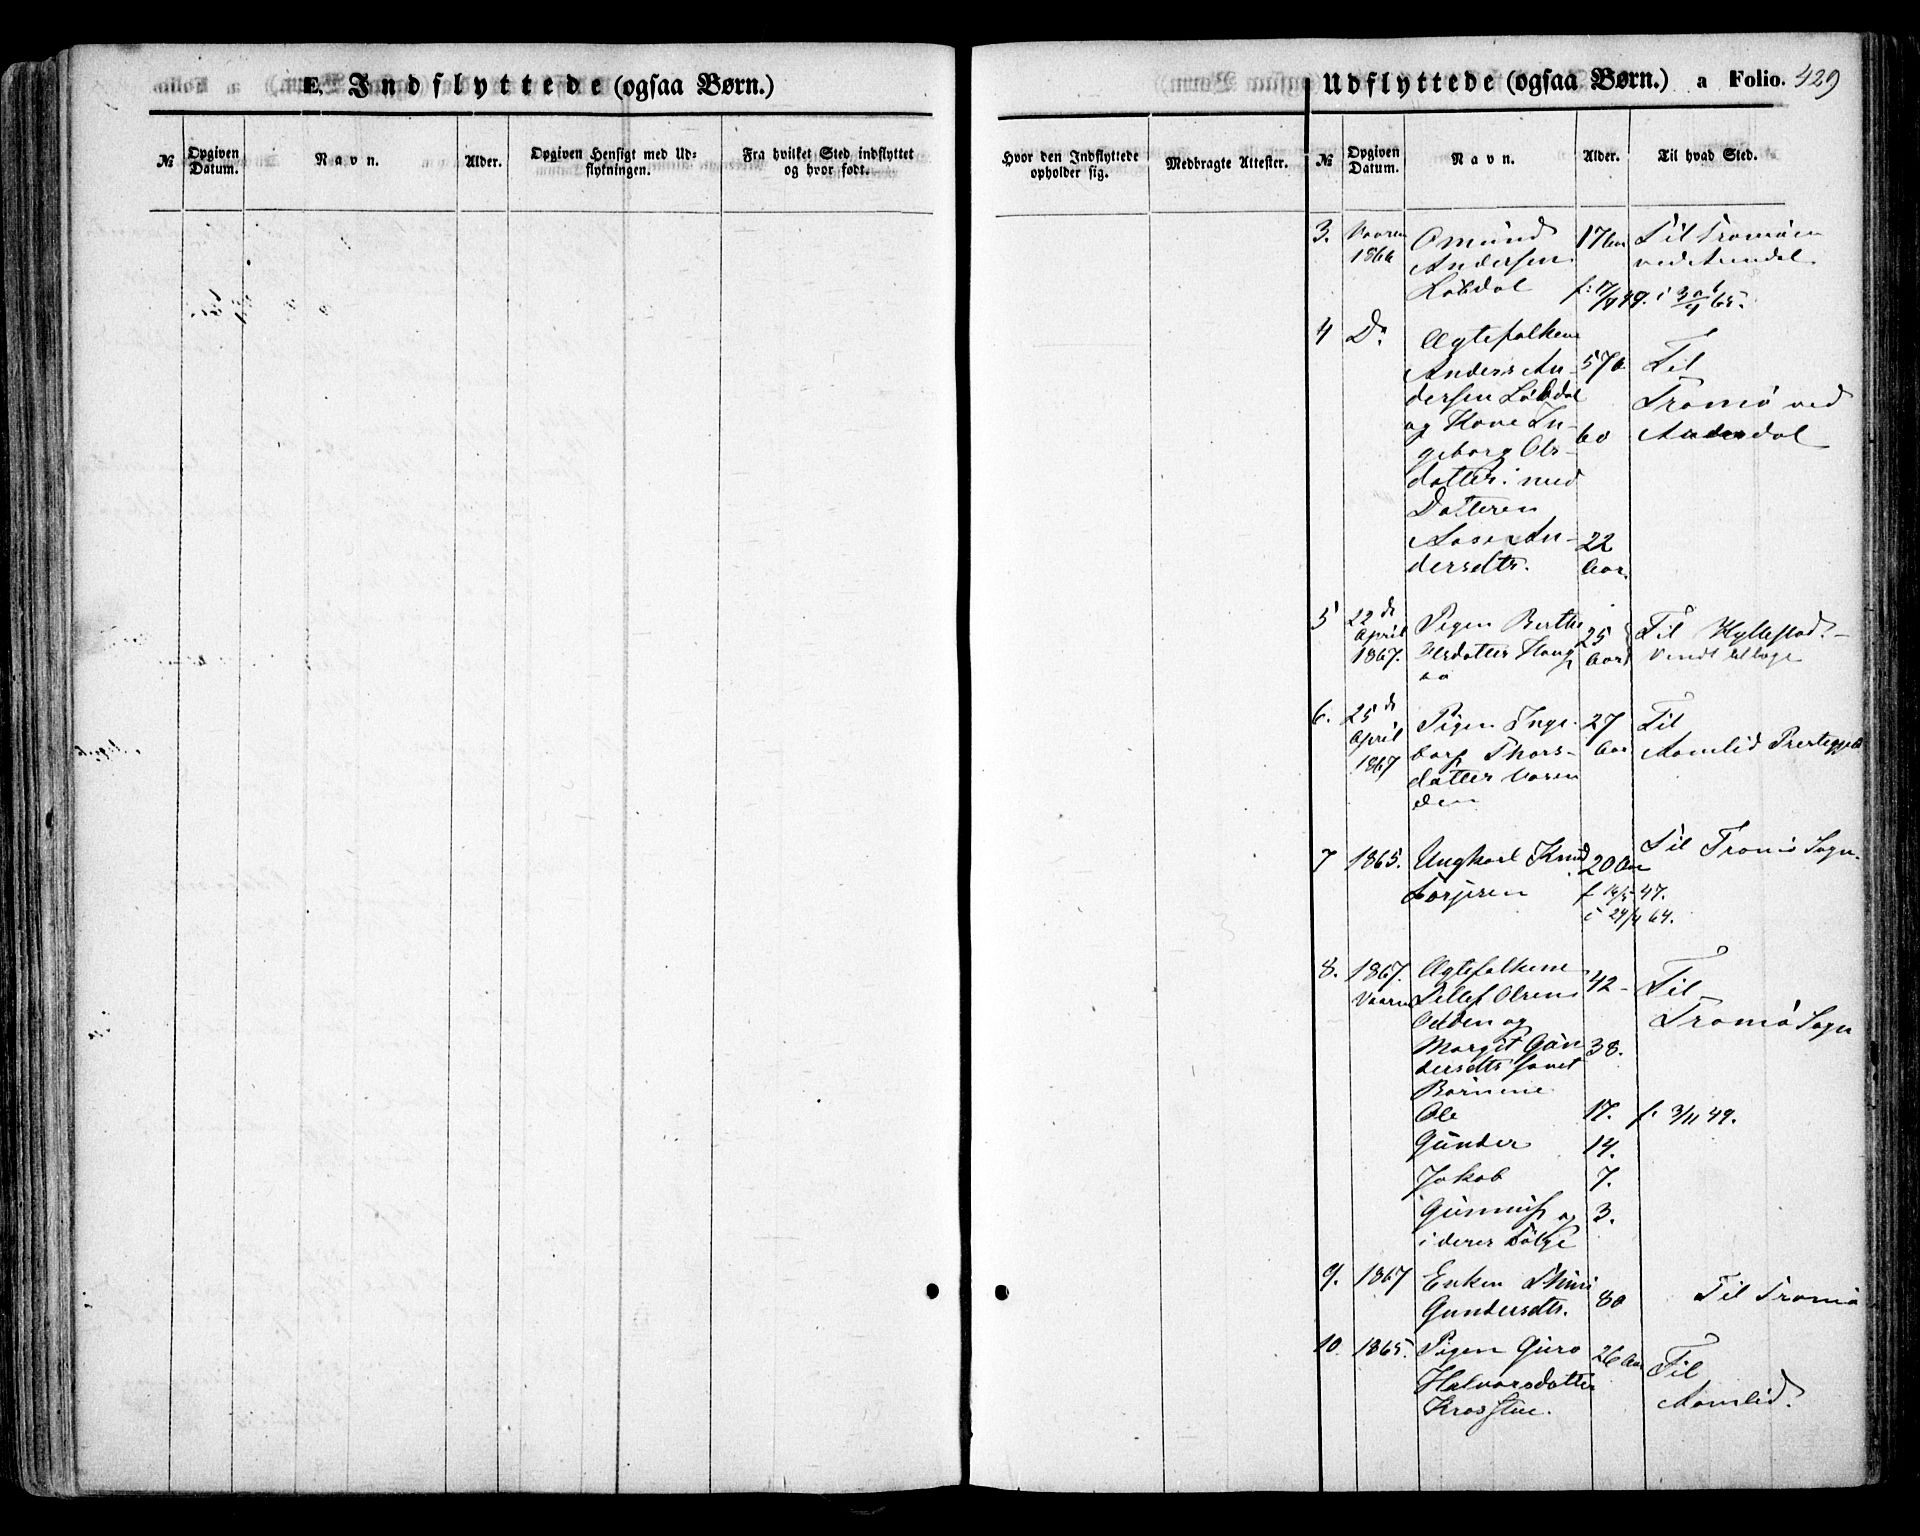 E. Indflyttede (ogsaa Børn.)
Udflyttede (ogsaa Børn.) a Folio. 429
№ Opgiven Datum. Navn. Alder. Opgiven Hensigt med Udflytningen. Fra hvilket Sted indflyttet og hvor født.
Hvor den Indflyttede opholder sig. Medbragte Attester. № Opgiven Datum. Navn. Alder. Til hvad Sted.
3. Vaaren Omund 17 Aar Til Tromøen
1866 Andersen ved Arendal
f: 49. i 65.
4 Do Ægtefolkene
Anders An- 57 Til
dersen Tromø ved
og Kone In- 60 Arendal
geborg Ols-
datter: med
Datteren
Aase An- 22
dersdtr. Aar.
5 22de Pigen Berthe 25 Til Hyllestad.
April Olsdatter Haug Aar vendt tilbage
1867. aa
6. 25de Pigen Inge- 27 Til
April borg Thors- Aar Aamlid Prestegjeld
1867 datter
7 1865. Ungkarl Knud 20 Aar Til Tromø Sogn.
Torjesen f 47.
i 24/4 64.
8. 1867. Ægtefolkene 42 - Til
Vaaren Tellef Olsen Tromø Sogn
og
Margit Gun 38.
dersdtr samt
Børnene
Ole 17. f. 3/11 49.
Gunder 14.
Jakob 7.
3.
i deres Følge
9. 1867 Enken Thuri 80 Til Tromø
Gundersdtr.
10 1865. Pigen Guro 26 Aar Til
Halvorsdatter Aamlid.
Krosstue.